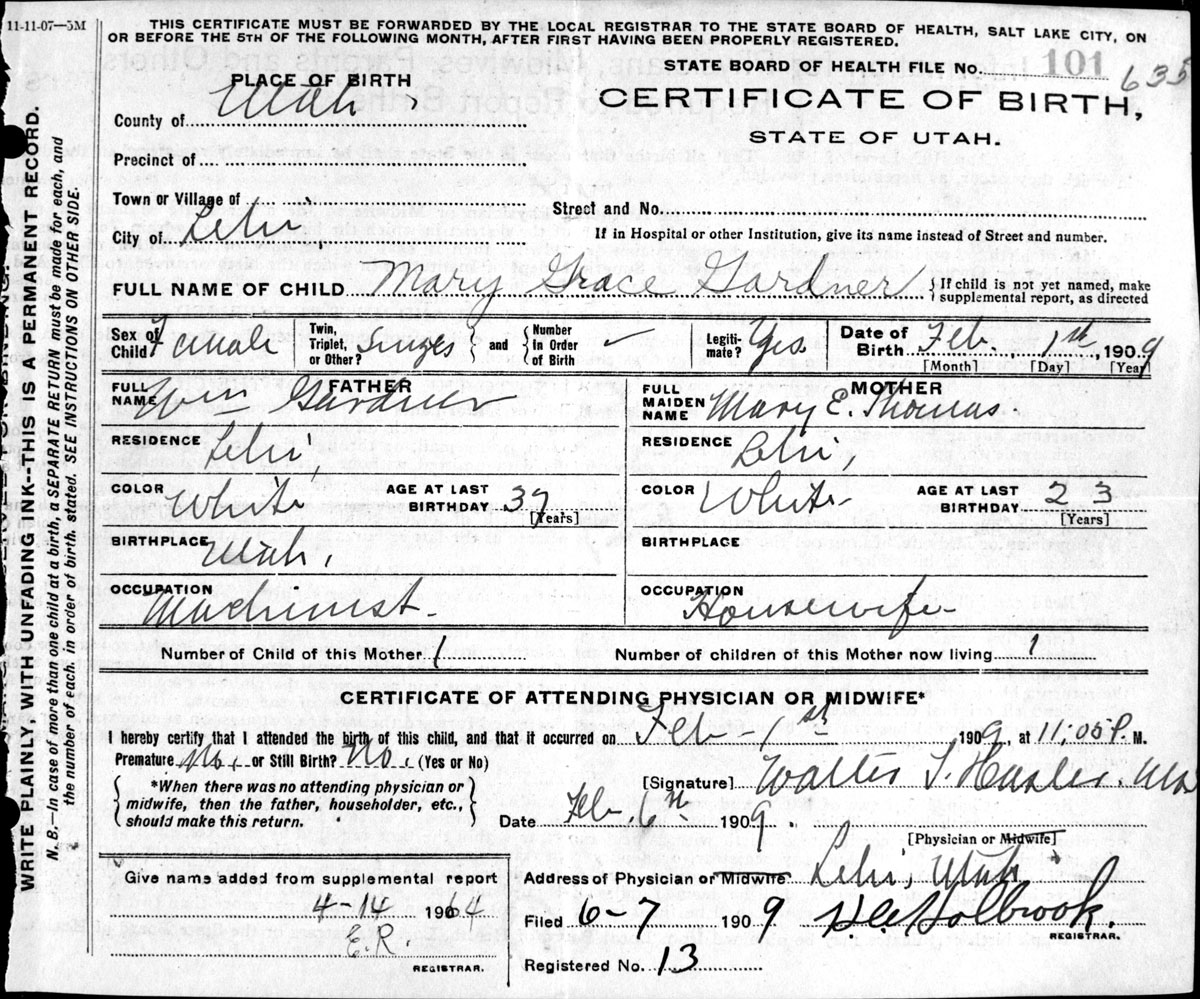 11-11-07—5M
THIS CERTIFICATE MUST BE FORWARDED BY THE LOCAL REGISTRAR TO THE STATE BOARD OF HEALTH, SALT LAKE CITY, ON
OR BEFORE THE 5TH OF THE FOLLOWING MONTH, AFTER FIRST HAVING BEEN PROPERLY REGISTERED.
STATE BOARD OF HEALTH FILE No. 101 635
CERTIFICATE OF BIRTH,
STATE OF UTAH.
PLACE OF BIRTH
County of Utah,
Precinct of
Town or Village of
Street and No.
City of Lehi,
If in Hospital or other Institution, give its name instead of Street and number.
FULL NAME OF CHILD Mary Grace Gardner { If child is not yet named, make supplemental report, as directed
Sex of Child Female Twin, Triplet, or Other? } and { Number in Order of Birth Legiti- mate? Yes Date of Birth Feb, 1st, 1909
[Month] [Day] [Year]
FATHER
FULL NAME Wm Gardner
MOTHER
FULL MAIDEN NAME Mary E. Thomas
RESIDENCE Lehi,
RESIDENCE Lehi,
COLOR White AGE AT LAST BIRTHDAY 37 [Years]
COLOR White AGE AT LAST BIRTHDAY 23 [Years]
BIRTHPLACE Utah,
BIRTHPLACE
OCCUPATION Machinist
OCCUPATION Housewife
Number of Child of this Mother 1 Number of children of this Mother now living 1
CERTIFICATE OF ATTENDING PHYSICIAN OR MIDWIFE*
I hereby certify that I attended the birth of this child, and that it occurred on Feb - 1st 1909, at 11:05 P. M.
Premature No. or Still Birth? No. (Yes or No)
{ *When there was no attending physician or midwife, then the father, householder, etc., should make this return. }
[Signature] Walter T. Hasler. M.D.
Date Feb, 6th 1909.
[Physician or Midwife]
Address of Physician or Midwife Lehi, Utah
Give name added from supplemental report
4-14 1964
E.R.
REGISTRAR.
Filed 6-7 1909 Holbrook.
REGISTRAR.
Registered No. 13
WRITE PLAINLY WITH UNFADING INK--THIS IS A PERMANENT RECORD.
N. B.—In case of more than one child at a birth, a SEPARATE RETURN must be made for each, and
the number of each in order of birth, stated. SEE INSTRUCTIONS ON OTHER SIDE.